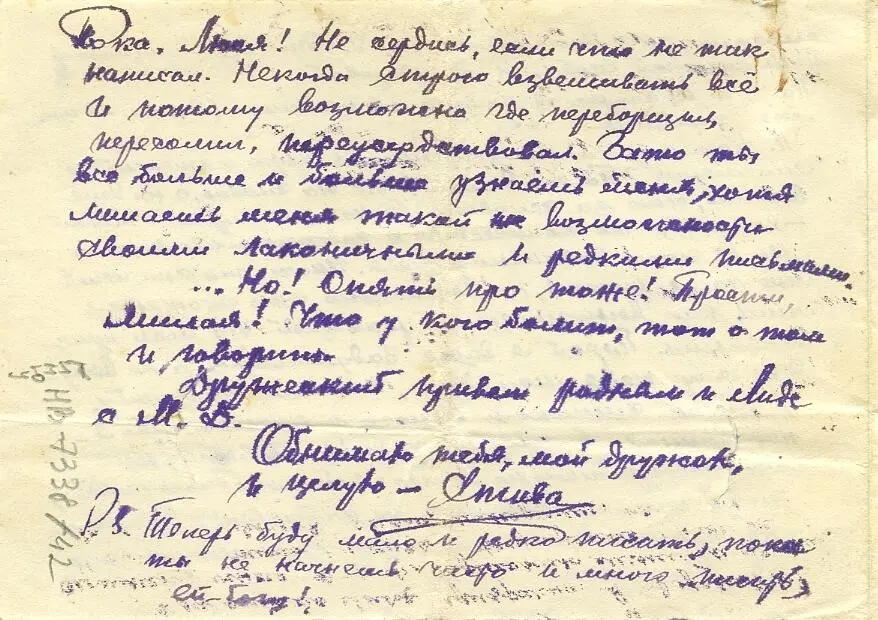 Пока, Люся! Не сердись, если что не так
написал. Некогда строго взвешивать всё
и потому возможно где переборщил,
пересолил, переусердствовал. Зато ты
всё больше и больше узнаёшь меня, хотя
лишаешь меня такой возможности
своими лаконичными и редкими письмами.
... Но! Опять про тоже! Прости,
милая! Что у кого болит, тот о том
и говорит.
Дружеский привет родным и Лиде
с М. В.
Обнимаю тебя, мой дружок,
и целую —
P.S. Теперь буду мало и редко писать, пока
ты не начнёшь часто и много писать,
ей-богу!
НВ-7338/42